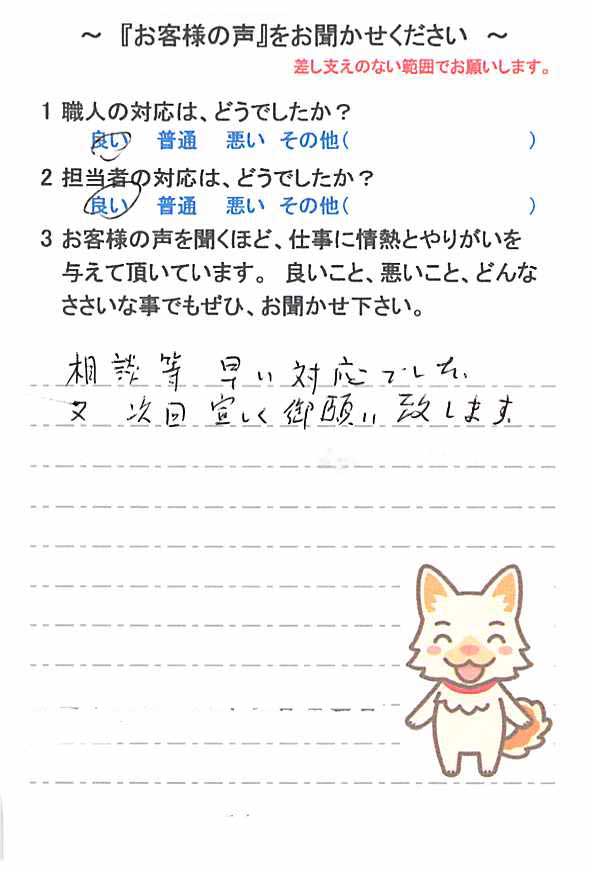 ～ 『お客様の声』をお聞かせください ～
差し支えのない範囲でお願いします。
1 職人の対応は、どうでしたか？
良い 普通 悪い その他( )
2 担当者の対応は、どうでしたか？
良い 普通 悪い その他( )
3 お客様の声を聞くほど、仕事に情熱とやりがいを
与えて頂いています。 良いこと、悪いこと、どんな
ささいな事でもぜひ、お聞かせ下さい。
相談等 早い対応でした
又 次回 宜しく御願い致します